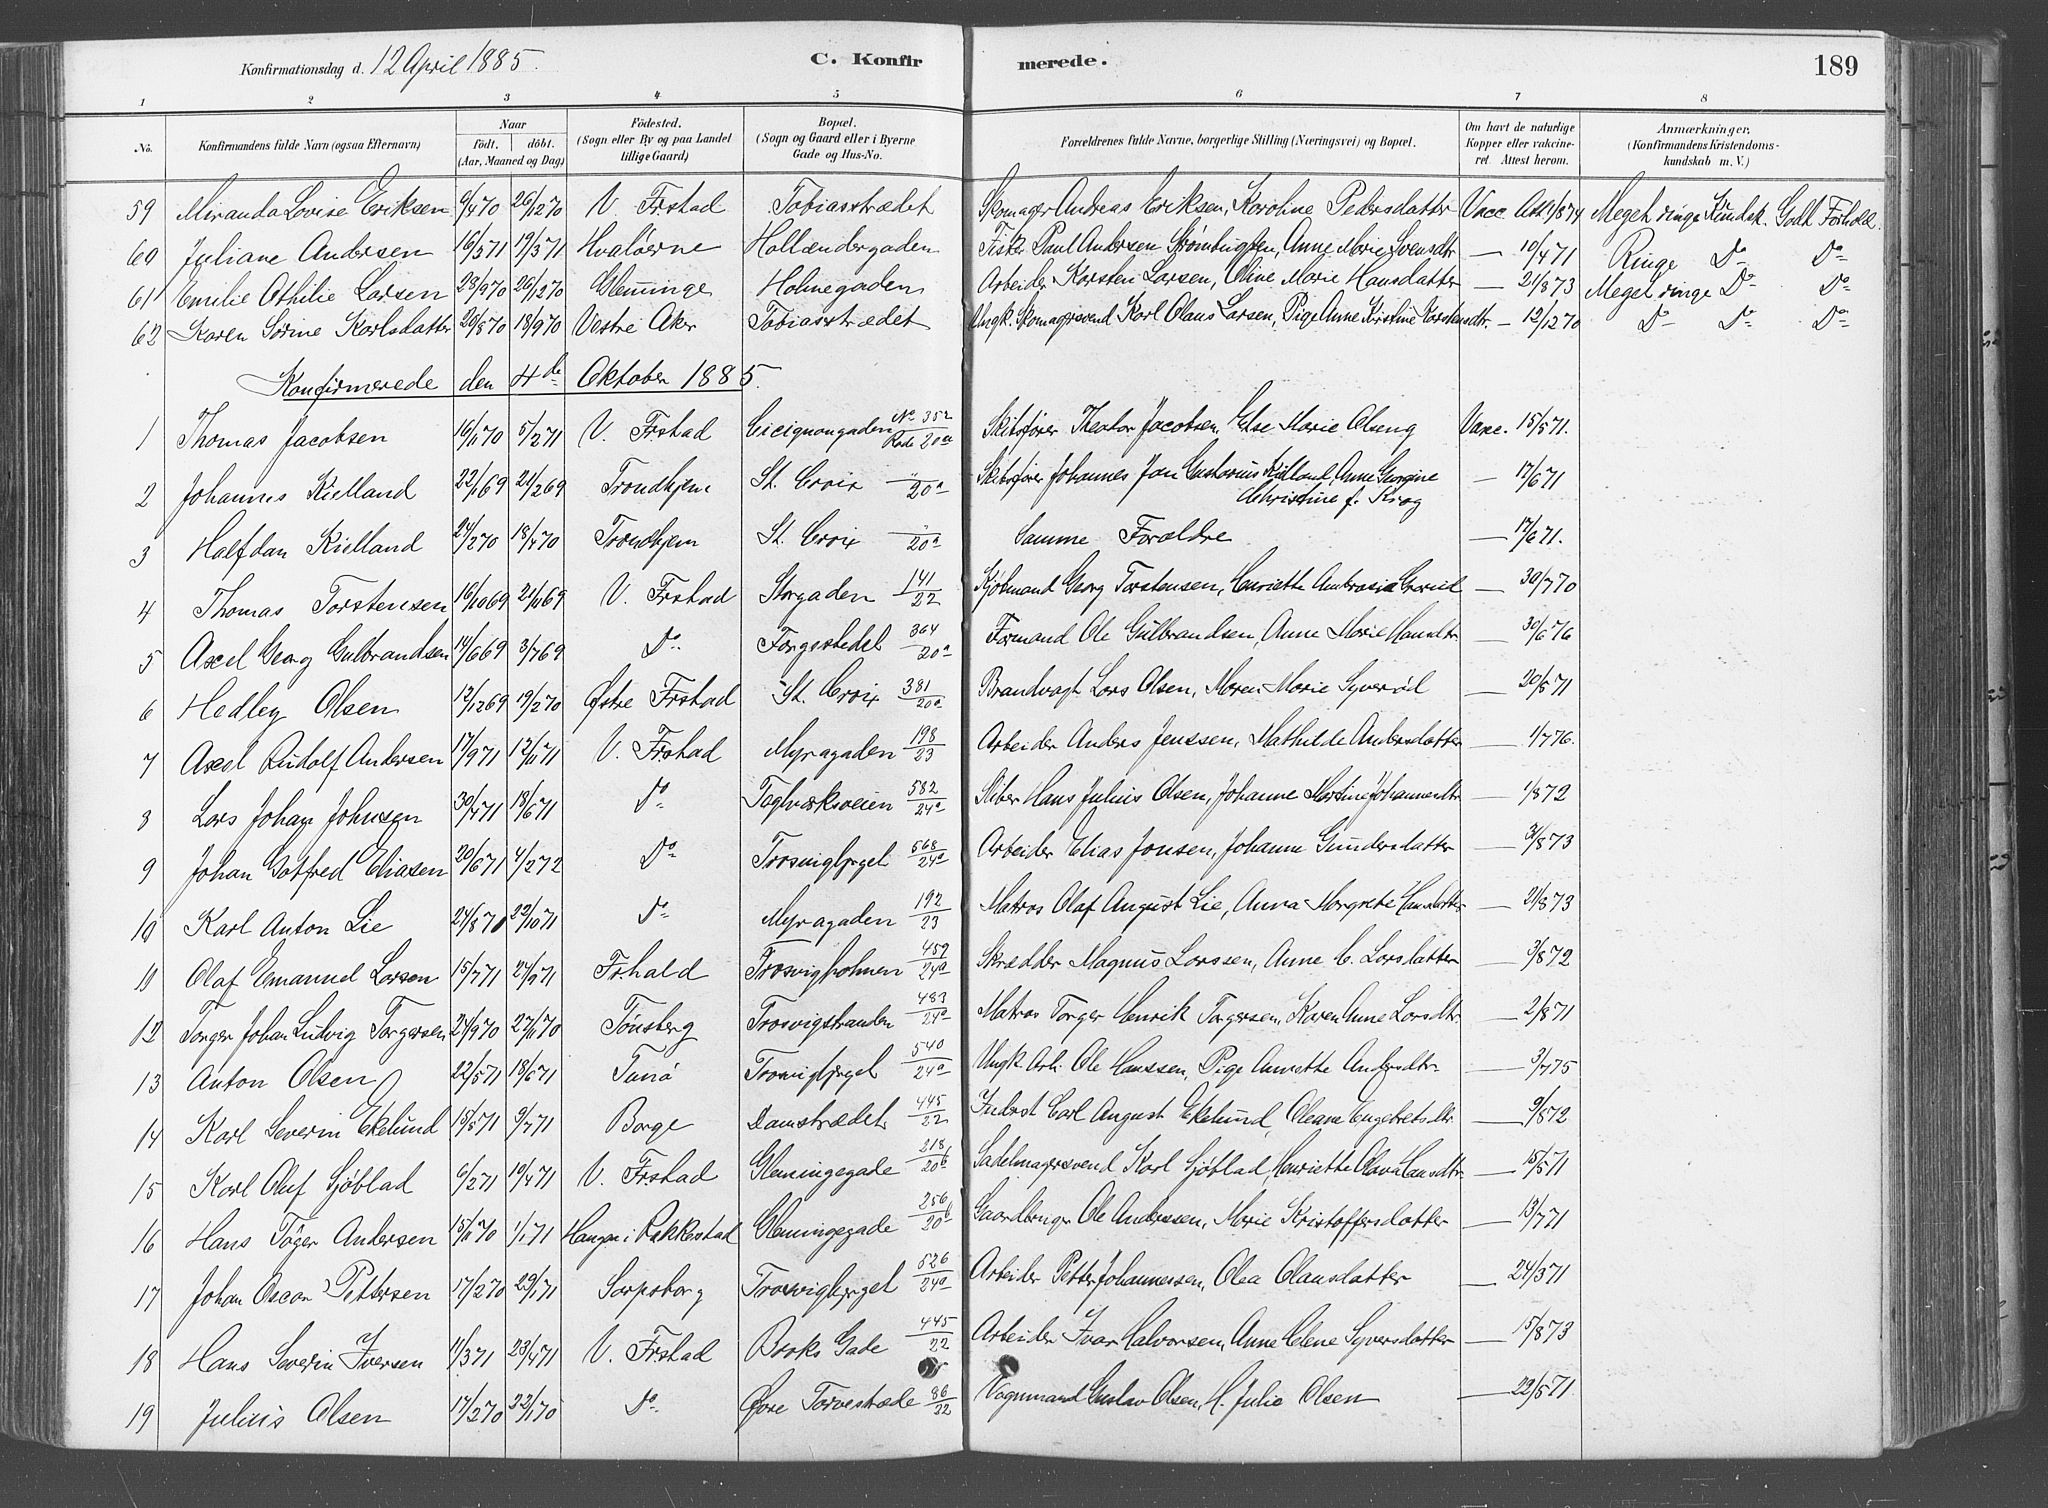 Konfirmationsdag d. 12 April 1885. C. Konfirmerede. 189
1 2 3 4 5 6 7 8
No. Konfirmandens fulde Navn (ogsaa Efternavn) Naar födt. döbt. (Aar, Maaned og Dag) Födested. (Sogn eller By og paa Landet tillige Gaard) Bopæl. (Sogn og Gaard eller i Byerne Gade og Hus-No. Forældrenes fulde Navne, borgerlige Stilling (Næringsvei) og Bopæl. Om havt de naturlige Kopper eller vakcineret. Attest herom. Anmærkninger. (Konfirmandens Kristendomskundskab m. V.)
59 Miranda Lovise Eriksen 6/4 70 26/12 70 V. Frstad Tobiasstrædet Skomager Andreas Eriksen, Karoline Pedersdatter Vacc. Att. 1/8 74 Meget ringe Kundsk. Godt Forhold.
60 Juliane Andersen 16/3 71 19/3 71 Hvaløerne Hollændergaden Fisker Paul Andersen, Anne Marie Svensdtr — 10/4 71 Ringe Do Do
61 Emilie Othilie Larsen 28/9 70 26/12 70 Glemminge Holmegaden Arbeider Karsten Larsen, Oline Marie Hansdatter — 21/8 73 Meget ringe Do Do
62 Karen Sorine Karlsdatter 20/8 70 18/9 70 Vestre Aker Tobiasstrædet Ungk. Skomagersvend Karl Olaus Larsen, Pige Anne Kristine Karstensdtr. — 12/12 70 Do Do Do
Konfirmerede den 4de Oktober 1885.
1 Thomas Jacobsen 16/11 70 5/2 71 V. Frstad Cicignongaden No 352 Rode 20a Skibsfører Theodor Jacobsen, Else Marie Olseng Vacc. 15/5 71.
2 Johannes Kielland 22/1 69 21/2 69 Trondhjem St. Croix 20a Skibsfører Johannes Jan Gustavus Kielland, Anne Georgine Christine f. Krog — 17/6 71
3 Halfdan Kielland 24/2 70 18/4 70 Trondhjem St. Croix 20a Samme Forældre — 17/6 71.
4 Thomas Torstensen 16/10 69 21/11 69 V. Frstad Storgaden 141/22 Kjøbmand Georg Torstensen, Henriette Ambrosia — 30/7 70
5 Axel Georg Gulbrandsen 14/6 69 3/7 69 Do Færgestedet 364/20a Formand Ole Gulbrandsen, Anne Marie Hansdtr — 30/6 76
6 Hedley Olsen 12/12 69 19/2 70 Østre Frstad St. Croix 381/20a Brandvagt Lars Olsen, Maren Marie Syverød — 20/5 71
7 Axel Rudolf Andersen 17/9 71 12/11 71 V. Frstad Myragaden 198/23 Arbeider Anders Jenssen, Mathilde Andersdatter — 1/7 76.
8 Lars Johan Johnsen 30/4 71 18/6 71 Do Teglværksveien 582/24a Hans Julius Olsen, Johanne Martine Johannesdtr — 1/8 72
9 Johan Gotfred Eliasen 20/6 71 4/2 72 Do Trosvigbjerget 568/24a Arbeider Elias Jonsen, Johanne Gundersdatter — 31/8 73
10 Karl Anton Lie 24/8 70 22/10 71 Do Myragaden 192/23 Matros Olaf August Lie, Anna Margrete Hansdatter — 21/8 73
11 Olaf Emanuel Larsen 15/7 71 24/9 71 Frhald Trosvigholmen 459/24a Skrædder Magnus Larssen, Anne C. Larsdatter — 3/8 72
12 Torger Johan Ludvig Torgersen 24/9 70 27/11 70 Tønsberg Trosvigstranden 483/24a Matros Torger Henrik Torgersen, Karen Anne Larsdtr. — 2/8 71
13 Anton Olsen 22/5 71 18/6 71 Tunø Trosvigbjerget 540/24a Ungk. Arb. Ole Hanssen, Pige Annette Andersdtr. — 3/7 75
14 Karl Severin Ekelund 15/5 71 9/7 71 Borge Damstrædet 445/22 Inderst Carl August Ekelund, Oleane Engebretsdtr. — 9/8 72
15 Karl Oluf Sjöblad 6/2 71 10/4 71 V. Frstad Glemmingegade 218/20b Sadelmagersvend Karl Sjöblad, Henriette Olava Hansdtr. — 15/5 71
16 Hans Töger Andersen 15/11 70 1/1 71 Haugen i Rakkestad Glemmingegade 256/20b Gaardbruger Ole Anderssen, Marie Kristoffersdatter — 13/7 71
17 Johan Oscar Pettersen 17/2 70 29/1 71 Sarpsborg Trosvigbjerget 526/24a Arbeider Petter Johannessen, Olea Olausdatter — 24/3 71
18 Hans Severin Iversen 11/3 71 23/4 71 V. Frstad Brooks Gade 445/22 Arbeider Ivar Halvorsen, Anne Helene Syversdatter — 15/8 73
19 Julius Olsen 17/2 70 Do Øvre Torvestræde 86/22 Vognmand Gustav Olsen, H. Julie Olsen — 22/5 71.